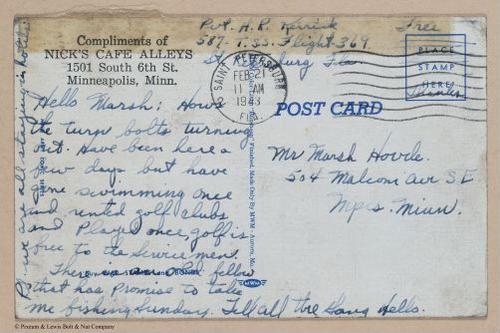 Compliments of
NICK'S CAFE ALLEYS
1501 South 6th St.
Minneapolis, Minn.
Pvt. H.R.
Free
587 T.S.S. Flight 369
St. Petersburg Fla
SAINT PETERSBURG
FEB 21
11 AM
1943
FLA.
PLACE
STAMP
HERE
POST CARD
Hello Marsh: Hows
the turn bolts turning
out. Have been here a
few days but have
gone swimming once
and rented golf clubs
and played once, golf is
free to the service men.
There is an old fellow
that has promise to take
me fishing Sunday. Tell all the Gang Hello.
we are all staying in hotels
Mr Marsh Hovde.
504 Malcom Ave S.E
Mpls. Minn.
Made Only By MWM - Aurora, Mo.
MWM
© Pioneer & Lewis Bolt & Nut Company